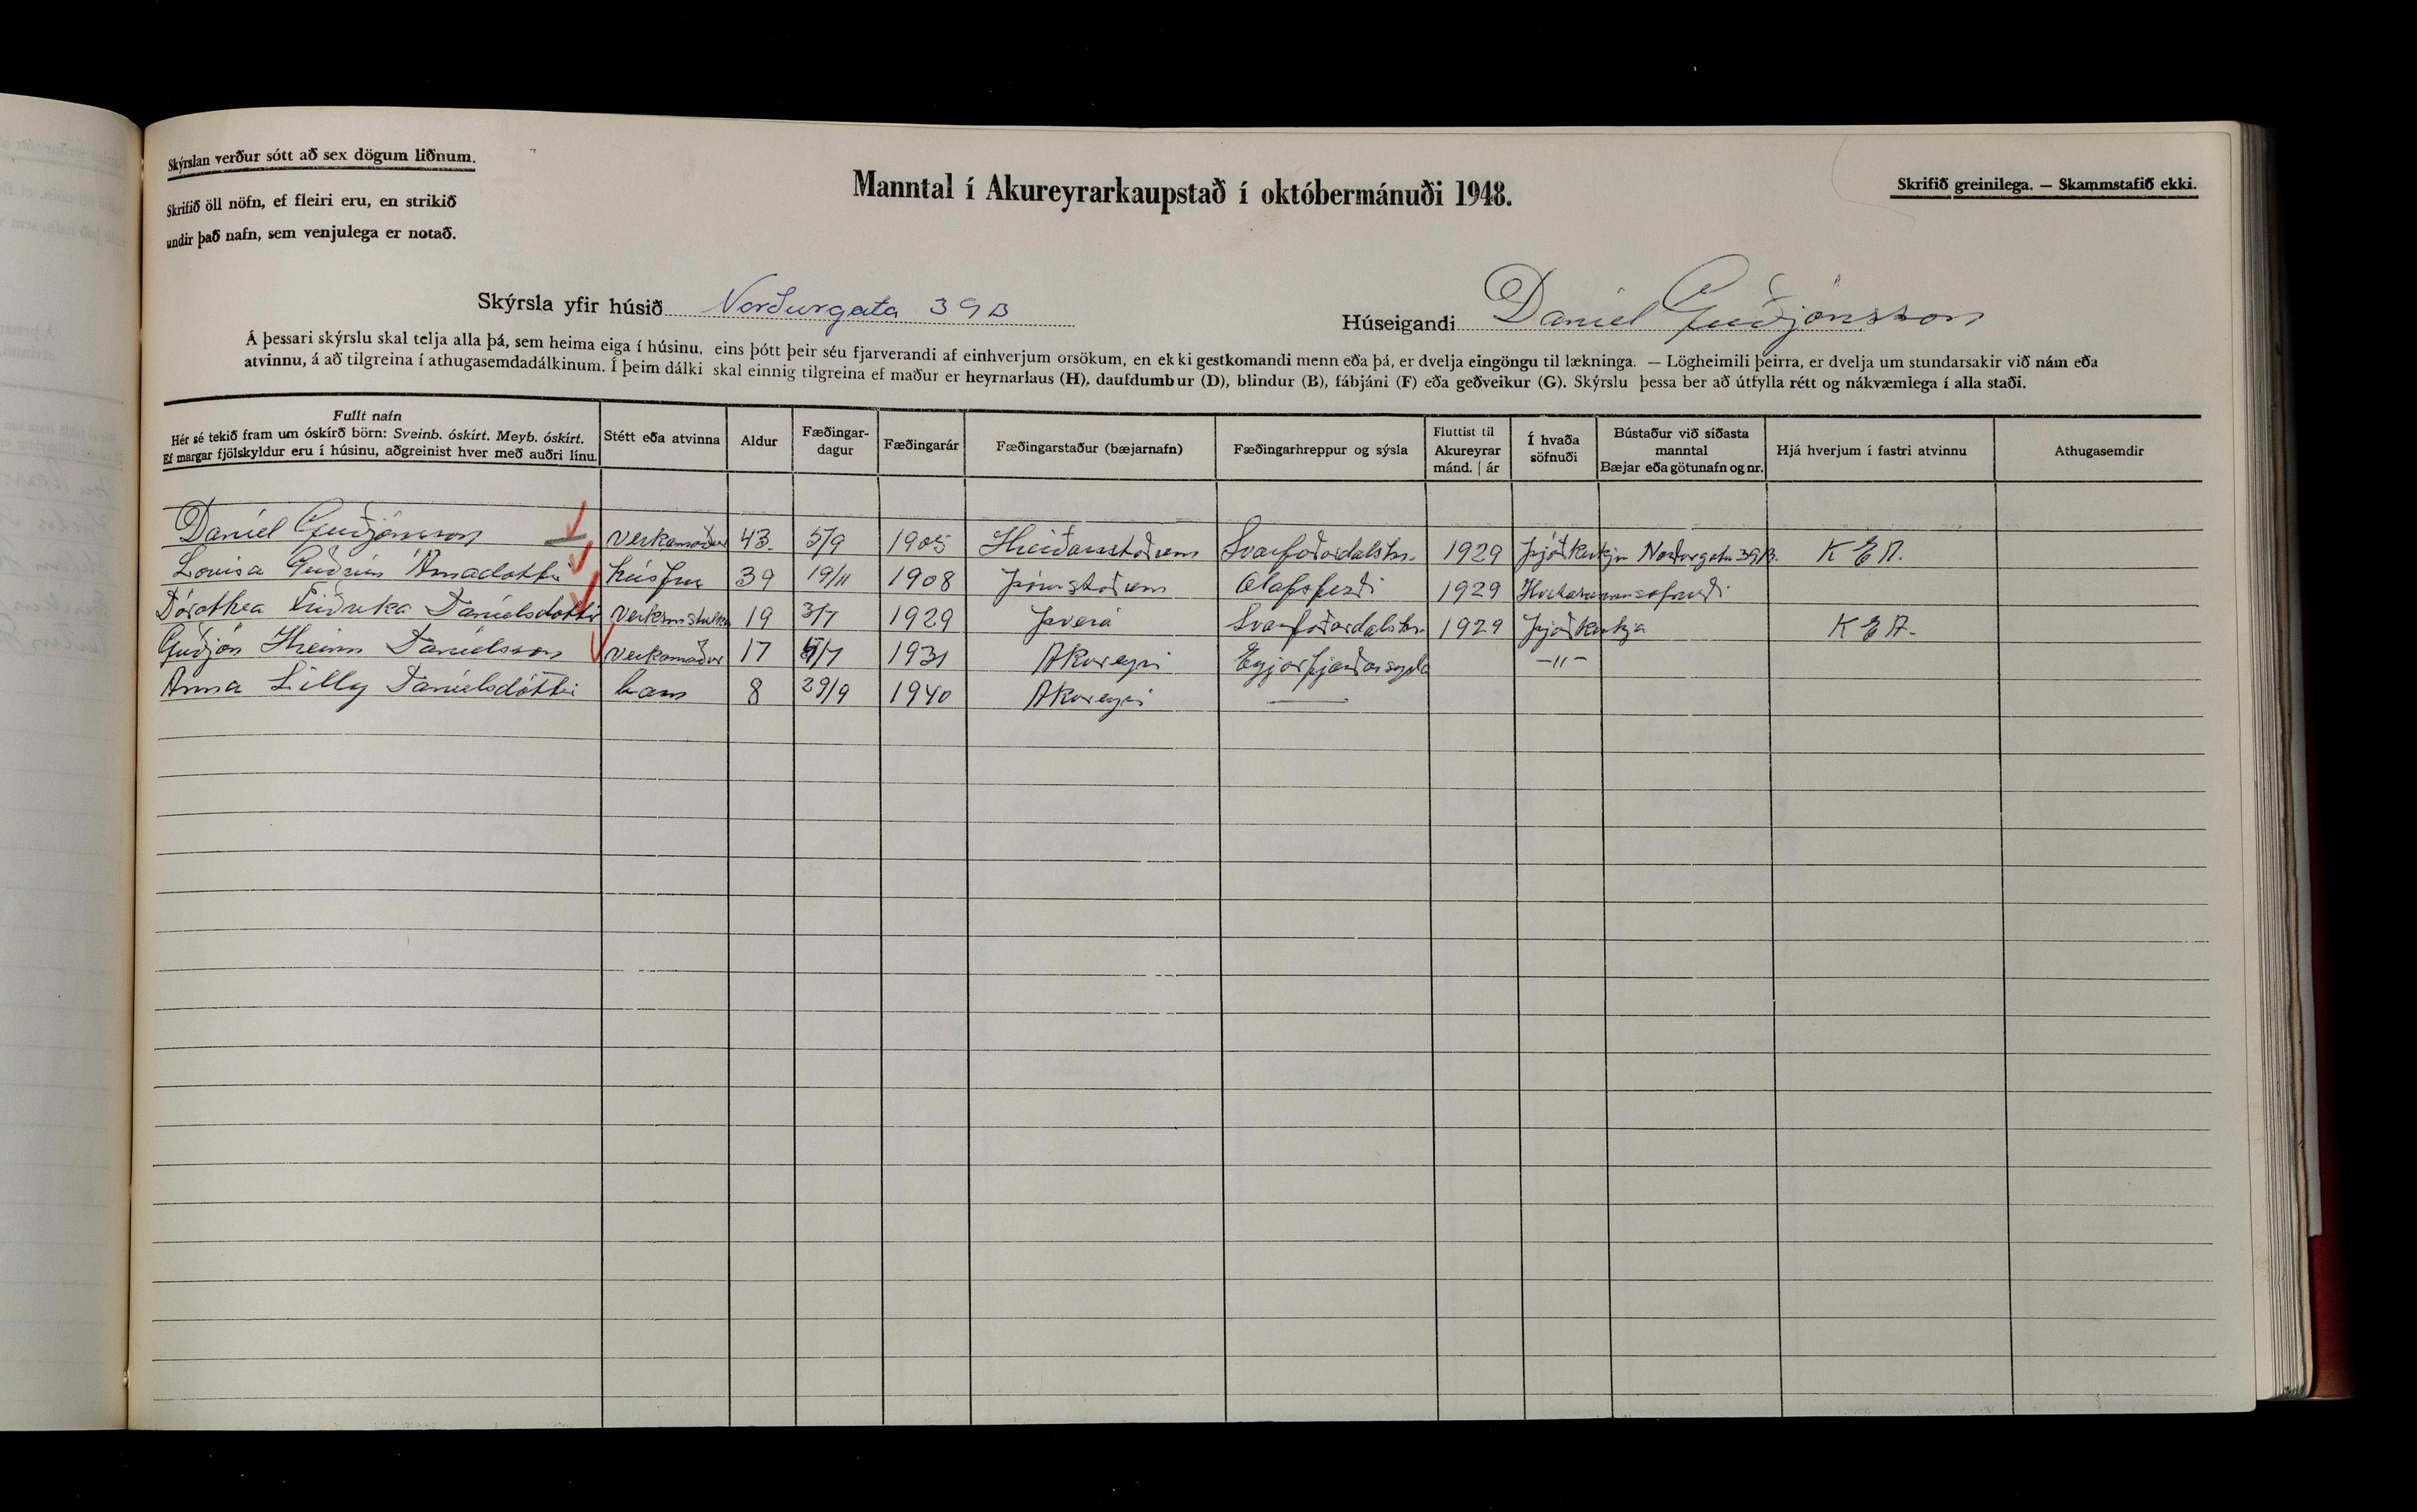 Skýrslan verður sótt að sex dögum liðnum.
Skrifið öll nöfn, ef fleiri eru, en strikið
undir það nafn, sem venjulega er notað.
Manntal í Akureyrarkaupstað í októbermánuði 1948.
Skrifið greinilega. — Skammstafið ekki.
Skýrsla yfir húsið Norðurgata 39B
Húseigandi Daníel Guðjónsson
Á þessari skýrslu skal telja alla þá, sem heima eiga í húsinu, eins þótt þeir séu fjarverandi af einhverjum orsökum, en ekki gestkomandi menn eða þá, er dvelja eingöngu til lækninga. — Lögheimili þeirra, er dvelja um stundarsakir við nám eða
atvinnu, á að tilgreina í athugasemdadálkinum. Í þeim dálki skal einnig tilgreina ef maður er heyrnarlaus (H), daufdumbur (D), blindur (B), fábjáni (F) eða geðveikur (G). Skýrslu þessa ber að útfylla rétt og nákvæmlega í alla staði.
Fullt nafn
Hér sé tekið fram um óskírð börn: Sveinb. óskírt. Meyb. óskírt.
Ef margar fjölskyldur eru í húsinu, aðgreinist hver með auðri línu.
Stétt eða atvinna
Aldur
Fæðingar-
dagur
Fæðingarár
Fæðingarstaður (bæjarnafn)
Fæðingarhreppur og sýsla
Fluttist til
Akureyrar
mánd. | ár
Í hvaða
söfnuði
Bústaður við síðasta
manntal
Bæjar eða götunafn og nr.
Hjá hverjum í fastri atvinnu
Athugasemdir
Daníel Guðjónsson verkamaður 43. 5/9 1905 Svarfaðardalshr. 1929 Þjóðkirkju Norðurgata 39B. K E A.
Lovisa Guðrún Árnadóttir húsfrú 39 19/11 1908 Ólafsfirði 1929
Dórothea Friðrika Daníelsdóttir verkamstulka 19 3/7 1929 Þverá Svarfaðardalshr. 1929 Þjóðkirkja K E A.
Guðjón Hreinn Daníelsson verkamaður 17 1931 Akureyri Eyjarfjarðarsysla —"—
Anna Lilly Daníelsdóttir barn 8 29/9 1940 Akureyri ——